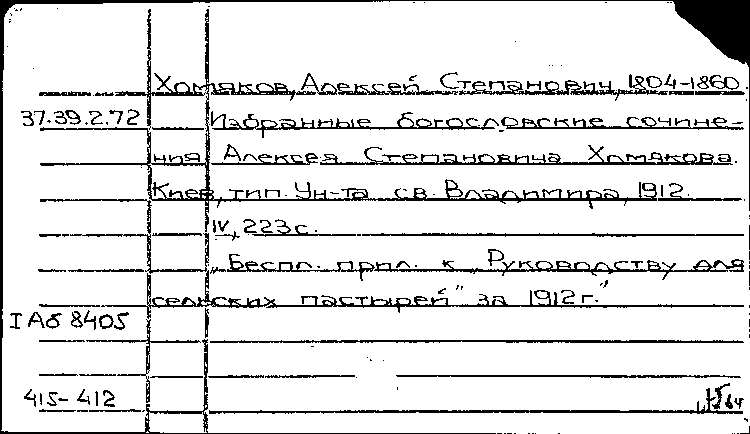 Хомяков, Алексей Степанович, 1804-1860.
37.39.2.72
Избранные богословские сочине-
ния Алексея Степановича Хомякова.
Киев, тип. Ун-та св. Владимира, 1912.
IV, 223 с.
„Беспл. прил. к „Руководству для
сельских пастырей" за 1912 г."
I Аб 8405
415-412